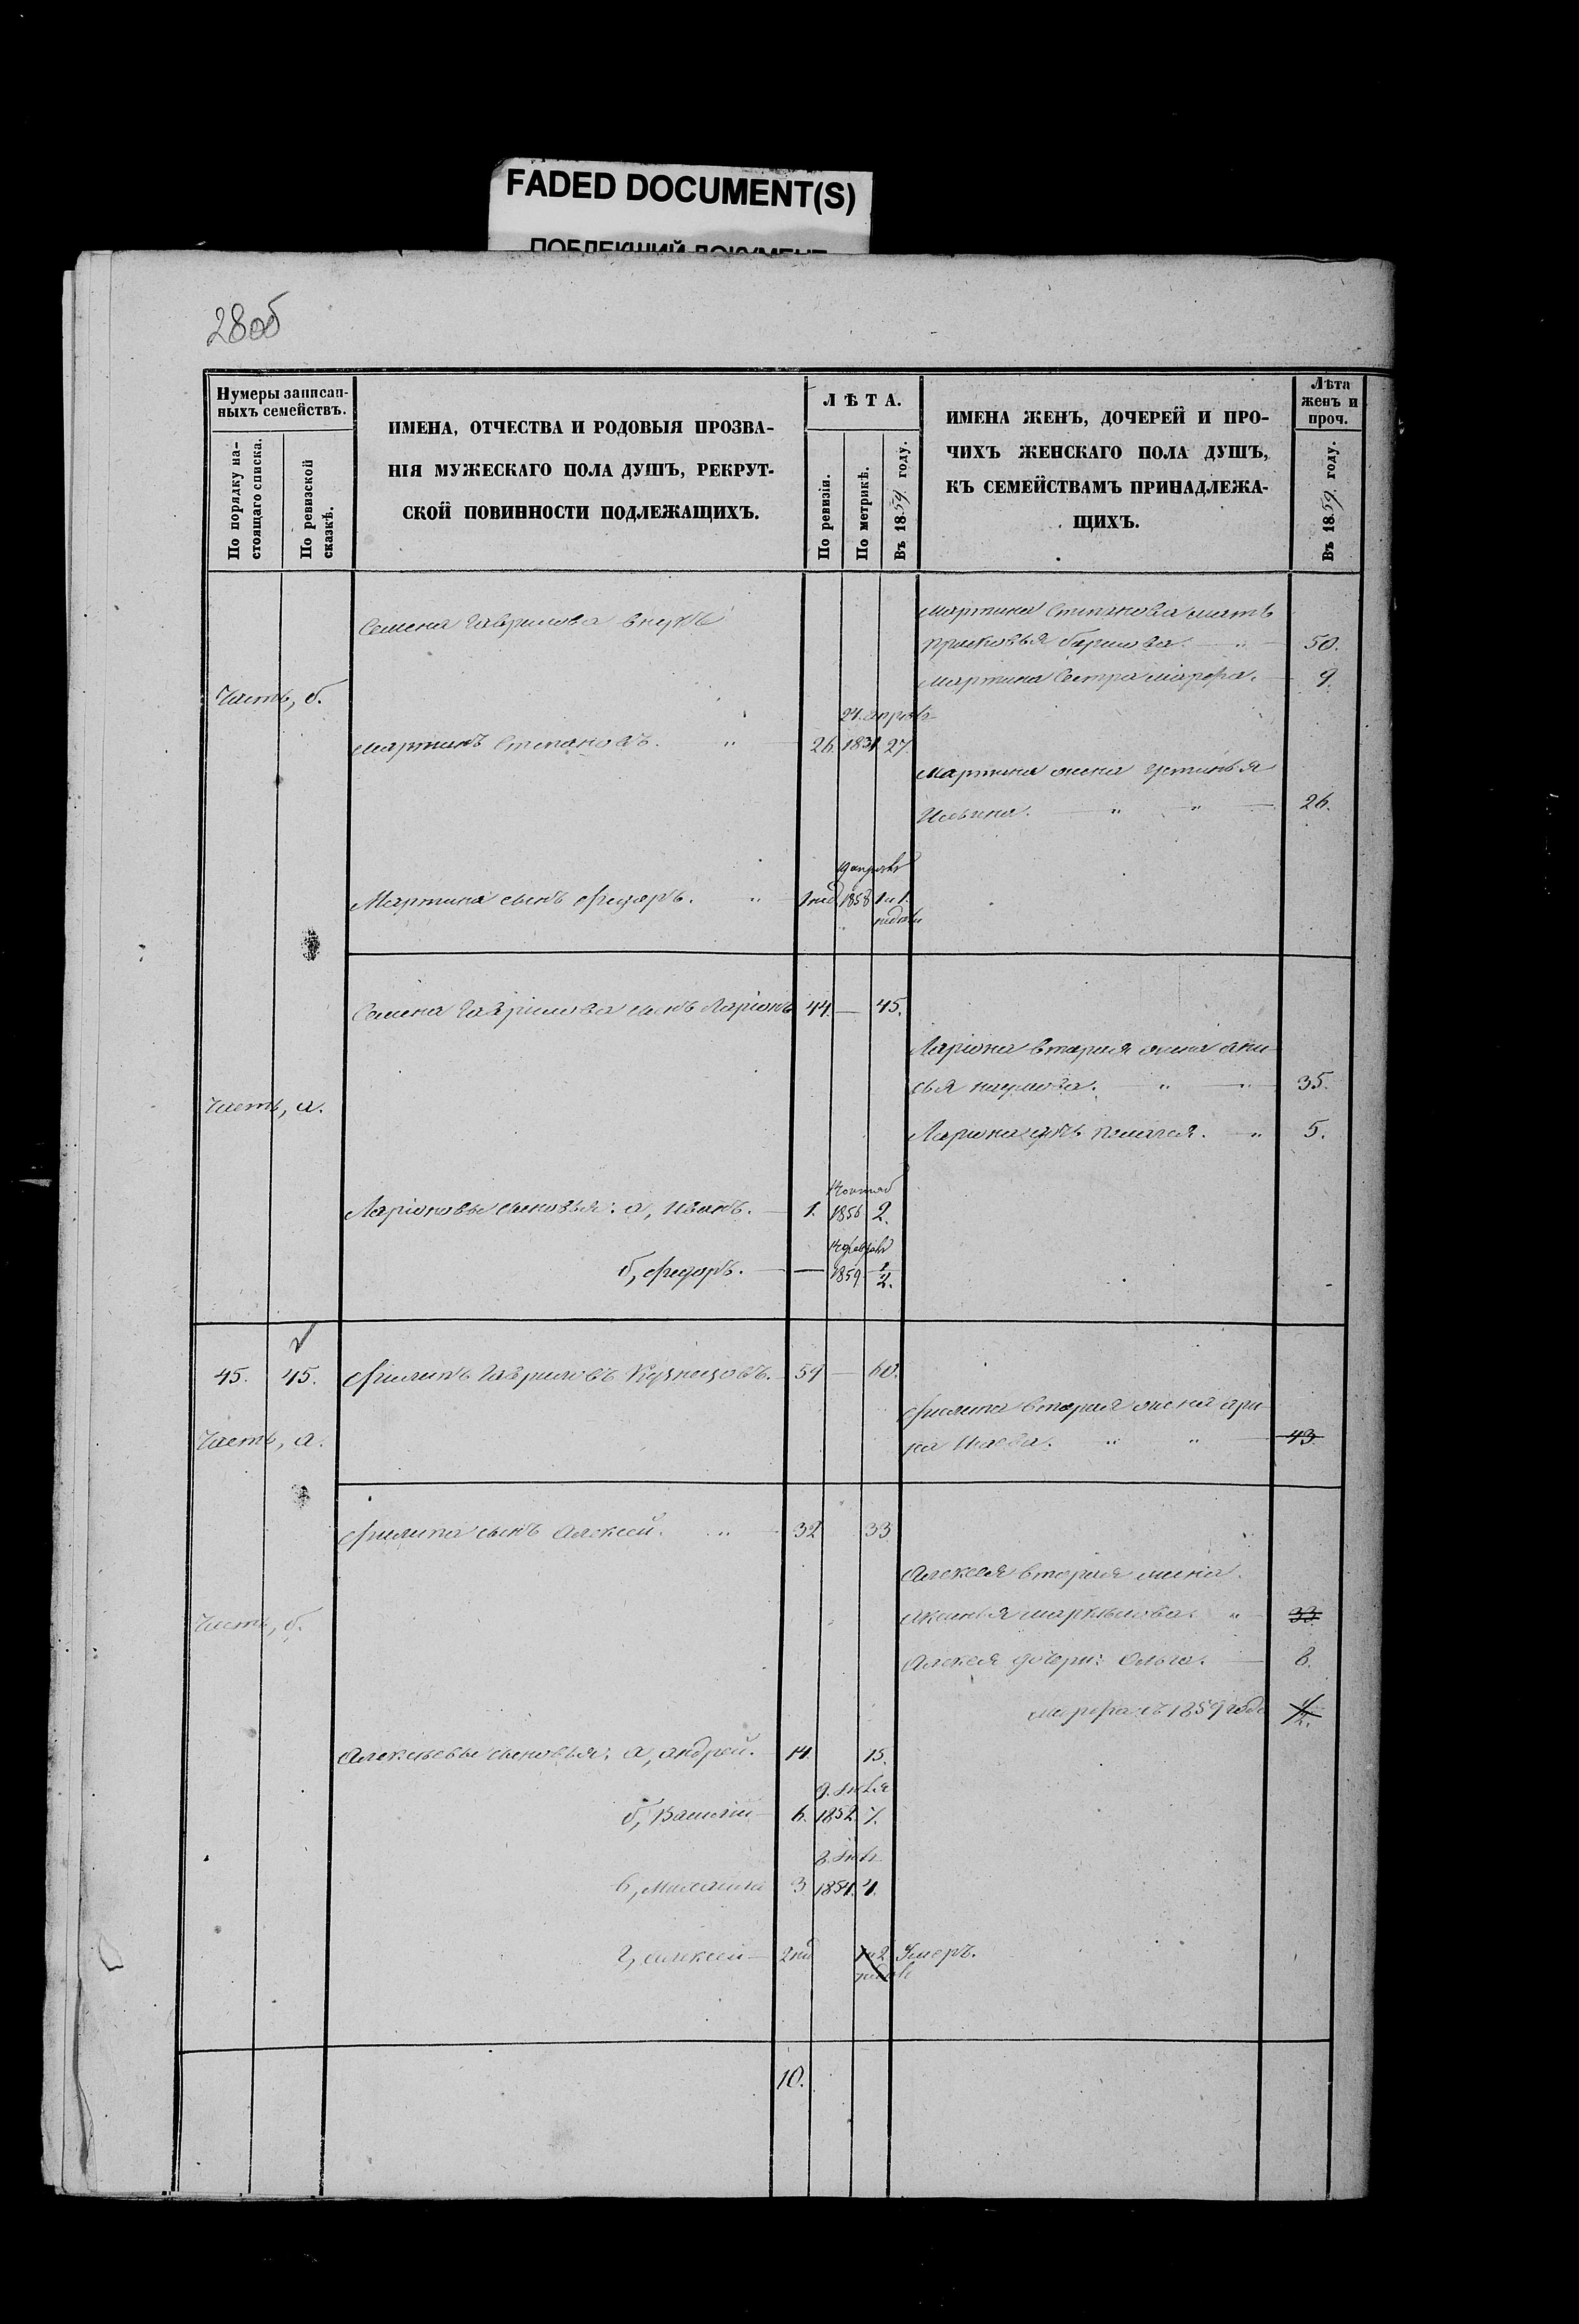 FADED DOCUMENT(S)
ПОБЛЕКШИЙ ДОКУМЕНТ
28об
Нумеры записан-
ныхъ семействъ.
По порядку на-
стоящаго списка.
По ревизской
сказкѣ.
ИМЕНА, ОТЧЕСТВА И РОДОВЫЯ ПРОЗВА-
НІЯ МУЖЕСКАГО ПОЛА ДУШЪ, РЕКРУТ-
СКОЙ ПОВИННОСТИ ПОДЛЕЖАЩИХЪ.
ЛѢТА.
По ревизіи.
По метрикѣ.
Въ 1859 году.
ИМЕНА ЖЕНЪ, ДОЧЕРЕЙ И ПРО-
ЧИХЪ ЖЕНСКАГО ПОЛА ДУШЪ,
КЪ СЕМЕЙСТВАМЪ ПРИНАДЛЕЖА-
ЩИХЪ.
Лѣта
женъ и
проч.
Въ 1859 году.
Семена Гаврилова внукъ
Мартина Степанова мать
Прасковья — " — 50.
Мартина сестра Марфа. — 9.
Часть, б.
24 апрѣл
Мартинъ Степановъ. " — 26. 1831 27.
Мартина жена Устинья
Ильина. — " " — 26.
19 апрѣл
Мартина сынъ Федоръ. " — 1нед 1858 1 и 1
недѣли
Семена Гаврилова сынъ Ларіонъ 44. — 45.
Ларіона вторая жена Ани-
сья Наумова. — " " — 35.
Часть, а.
Ларіона дочь Пелагея. — " 5.
14 октяб
Ларіоновы сыновья: а, Иванъ. — 1. 1856 2.
14 феврал
б, Федоръ. — — 1859 1/2.
45. 45. Филипъ Гавриловъ Кузнецовъ. — 59 — 60.
Филипа вторая жена Ари-
Часть, а.
на Исаева. — " " — 43
Филипа сынъ Алексей. " — 32 33
Алексея вторая жена
Часть, б.
Аксинья Маркелова. " — 33
Алексея дочери: Ольга. — 8.
Марфа съ 1859 года 1/2.
Алексѣевы сыновья: а, Андрей. — 14. 15.
9. Янвя
б, Василій — 6. 1852. 7.
8. Янв
в, Михаила 3 1854. 4.
г, Алексей — 2нед 1 и 2 Умеръ.
недѣли
10.